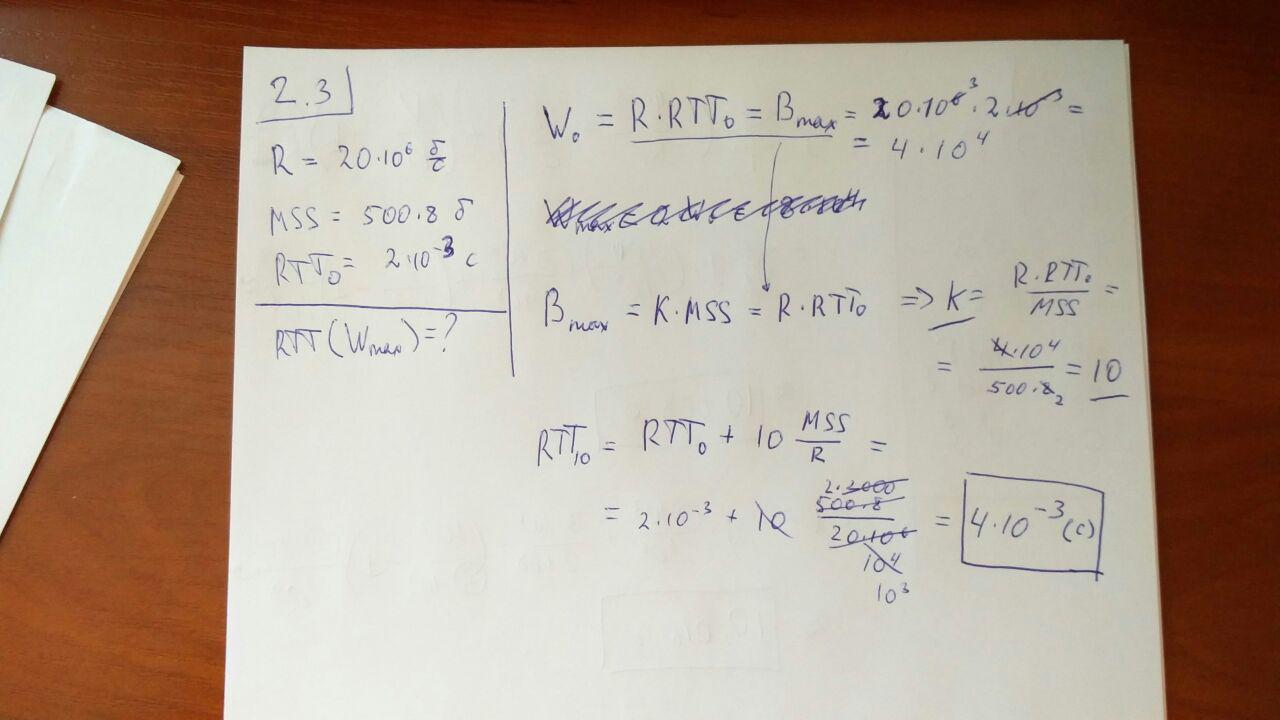 2.3
R = 20·10⁶ б/с
MSS = 500·8 б
RTT₀ = 2·10⁻³ с
RTT(Wmax) = ?
W₀ = R·RTT₀ = Bmax = 20·10⁶ ³·2·10⁻³ =
= 4·10⁴
Bmax = K·MSS = R·RTT₀ => K = R·RTT₀/MSS =
= 4·10⁴/500·8 2 = 10
RTT₁₀ = RTT₀ + 10 MSS/R =
= 2·10⁻³ + 10 2·1000 500·8/20·10⁶ 10⁴ 10³ = 4·10⁻³ (с)